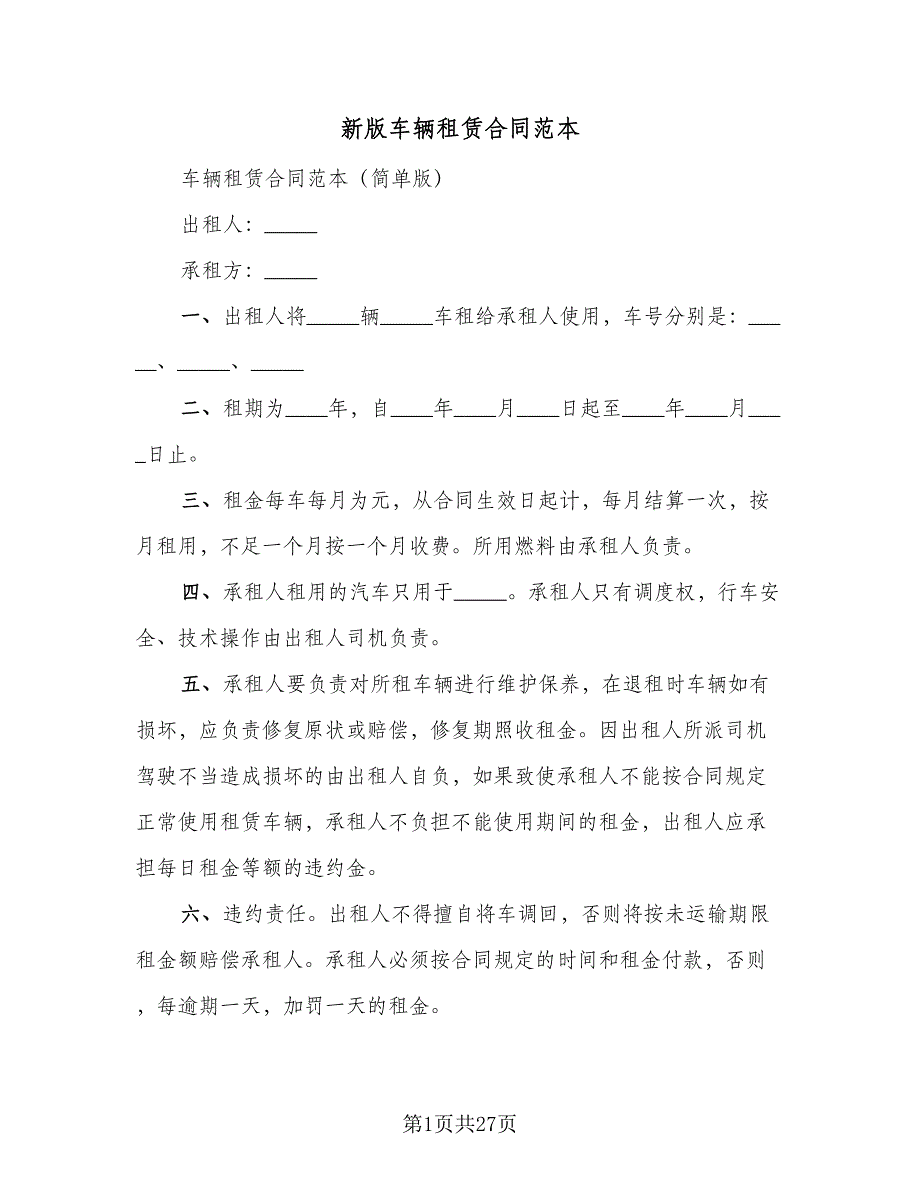 新版车辆租赁合同范本
车辆租赁合同范本（简单版）
出租人：_____
承租方：_____
一、出租人将_____辆_____车租给承租人使用，车号分别是：___
__、_____、_____
二、租期为____年，自____年____月____日起至____年____月___
_日止。
三、租金每车每月为元，从合同生效日起计，每月结算一次，按
月租用，不足一个月按一个月收费。所用燃料由承租人负责。
四、承租人租用的汽车只用于_____。承租人只有调度权，行车安
全、技术操作由出租人司机负责。
五、承租人要负责对所租车辆进行维护保养，在退租时车辆如有
损坏，应负责修复原状或赔偿，修复期照收租金。因出租人所派司机
驾驶不当造成损坏的由出租人自负，如果致使承租人不能按合同规定
正常使用租赁车辆，承租人不负担不能使用期间的租金，出租人应承
担每日租金等额的违约金。
六、违约责任。出租人不得擅自将车调回，否则将按未运输期限
租金额赔偿承租人。承租人必须按合同规定的时间和租金付款，否则
，每逾期一天，加罚一天的租金。
第1页共27页